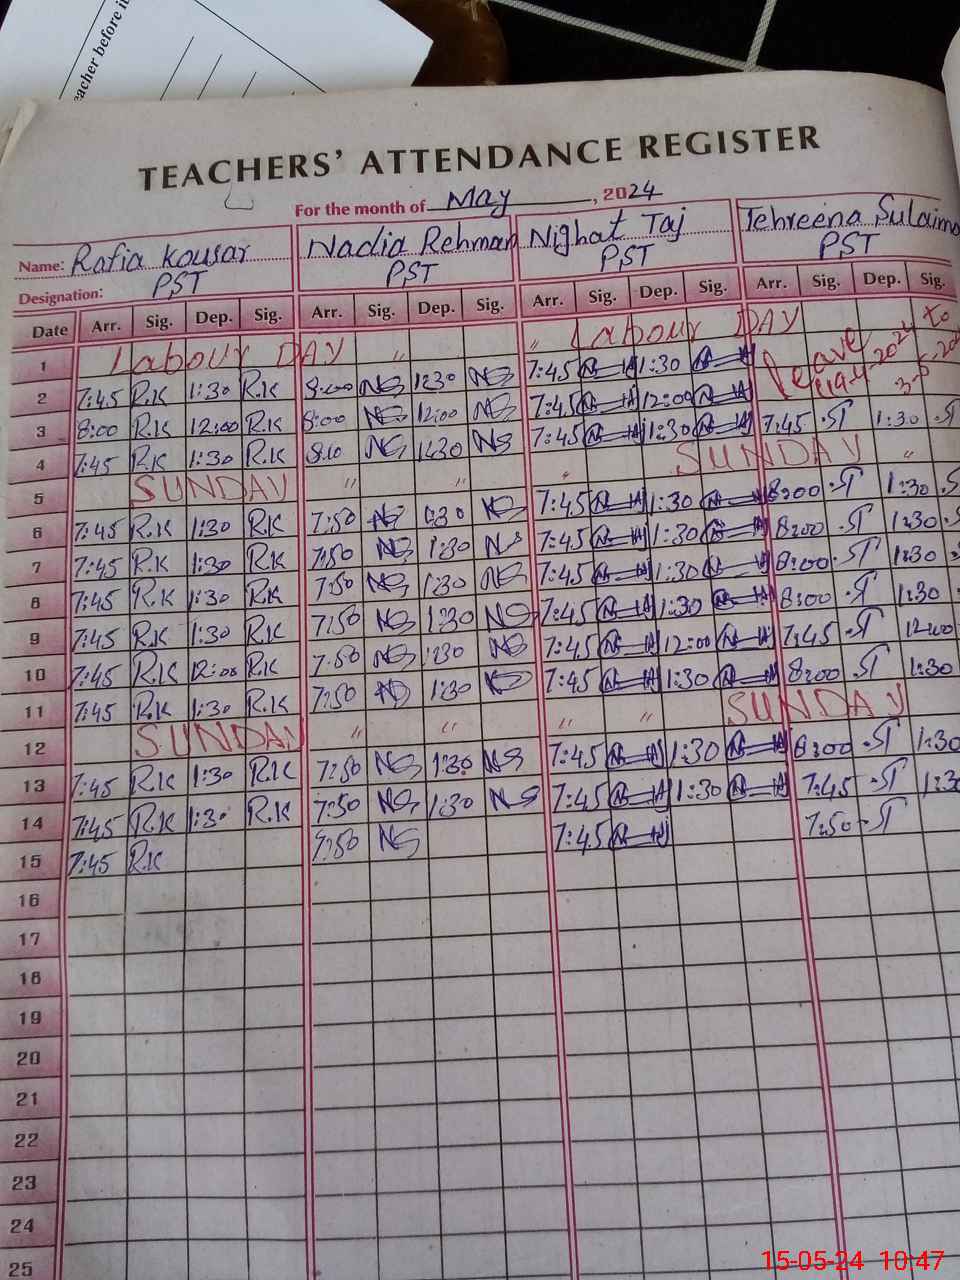 eacher before i
TEACHERS' ATTENDANCE REGISTER
For the month of May, 2024
Name: Rafia Kousar Nadia Rehman Nighat Taj Tehreena Sulaima
Designation: PST PST PST PST
Date Arr. Sig. Dep. Sig. Arr. Sig. Dep. Sig. Arr. Sig. Dep. Sig. Arr. Sig. Dep. Sig.
1 Labour DAY " " Labour DAY Leave to
2 7:45 R.K 1:30 R.K 8:00 NS 1:30 NS 7:45 1:30
3 8:00 R.K 12:00 R.K 8:00 NS 12:00 NS 7:45 12:00
4 7:45 R.K 1:30 R.K 8:10 NS 1:30 NS 7:45 1:30 7:45 ST 1:30 ST
5 SUNDAY " " " SUNDAY "
6 7:45 R.K 1:30 R.K 7:50 NS 1:30 NS 7:45 1:30 8:00 ST 1:30 S
7 7:45 R.K 1:30 R.K 7:50 NS 1:30 NS 7:45 1:30 8:00 ST 1:30 S
8 7:45 R.K 1:30 R.K 7:50 NS 1:30 NS 7:45 1:30 8:00 ST 1:30
9 7:45 R.K 1:30 R.K 7:50 NS 1:30 NS 7:45 1:30 8:00 ST 1:30
10 7:45 R.K 12:00 R.K 7:50 NS 1:30 NS 7:45 12:00 7:45 ST 12:00
11 7:45 R.K 1:30 R.K 7:50 NS 1:30 NS 7:45 1:30 8:00 ST 1:30
12 SUNDAY " " " " SUNDAY
13 7:45 R.K 1:30 R.K 7:50 NS 1:30 NS 7:45 1:30 8:00 ST 1:30
14 7:45 R.K 1:30 R.K 7:50 NS 1:30 NS 7:45 1:30 7:45 ST 1:30
15 7:45 R.K 7:50 NS 7:45 7:50 ST
16
17
18
19
20
21
22
23
24
25
15-05-24 10:47